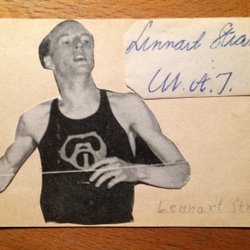 Lennart Stra
M.A.I.
Lennart Str